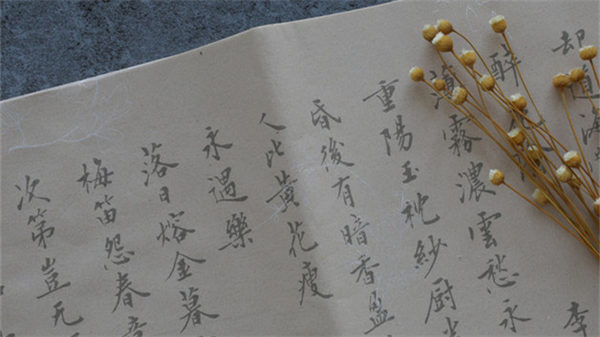 却道海
醉 李
薄霧濃雲愁永
重陽玉枕紗厨
昏後有暗香盈
人比黃花瘦
永遇樂
落日熔金暮
梅笛怨春意
次第豈无